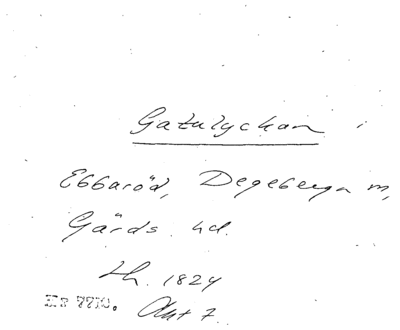 Gatulyckan i
Ebbaröd, Degeberga sn,
Gärds hd.
Lh. 1824
Nr 7710. Akt 7.